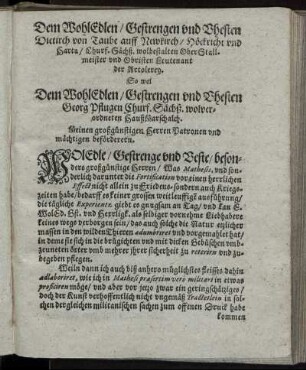 Dem WohlEdlen / Gestrengen vnd Vhesten
Dietrich von Taube auff Newkirch / Höckricht vnd
Harta / Churf. Sächß. wolbestalten Ober Stall-
meister vnd Obristen Leutenant
der Artolerey.
So wol
Dem WohlEdlen / Gestrengen vnd Vhesten
Georg Pflugen Churf. Sächß. wolver-
ordneten Haußmarschalch.
Meinen großgünstigen Herren Patronen vnd
mächtigen beförderern.
WOlEdle / Gestrenge vnd Veste / beson-
ders großgünstige Herren / Was Mathesis, vnd son-
derlich darunter die Fortification vor einen herrlichen
Effect nicht allein zu Friedens- sondern auch Kriegs-
zeiten habe / bedarff es keiner grossen weitleufftigẽ außführung /
die tägliche Experientz giebt es gnugsam an Tag /
WolEd. Gest. vnd Herrligk. als selbiger vornehme Liebhabere
keines weges verborgen sein / das auch solche die Natur etzlicher
massen in den wilden Thieren vnd vorgemahlet hat /
in deme sie sich in die vnd mit dicken Gebüschen vmb-
örter vmb mehrer ihrer sicherheit zu retiriren vnd zu-
begeben pflegen.
Weiln dann ich auch biß anhero müglichstes fleisses dahin
adlaboriret, wie ich in Mathesi præsertim vero militari in etwas
proficiren möge / vnd aber vor jetzo zwar ein geringschätziges /
doch der Kunst verhoffentlich nicht vngemäß Tractetlein in sol-
chen dergleichen militarischen sachen zum offenen Druck habe
kommen